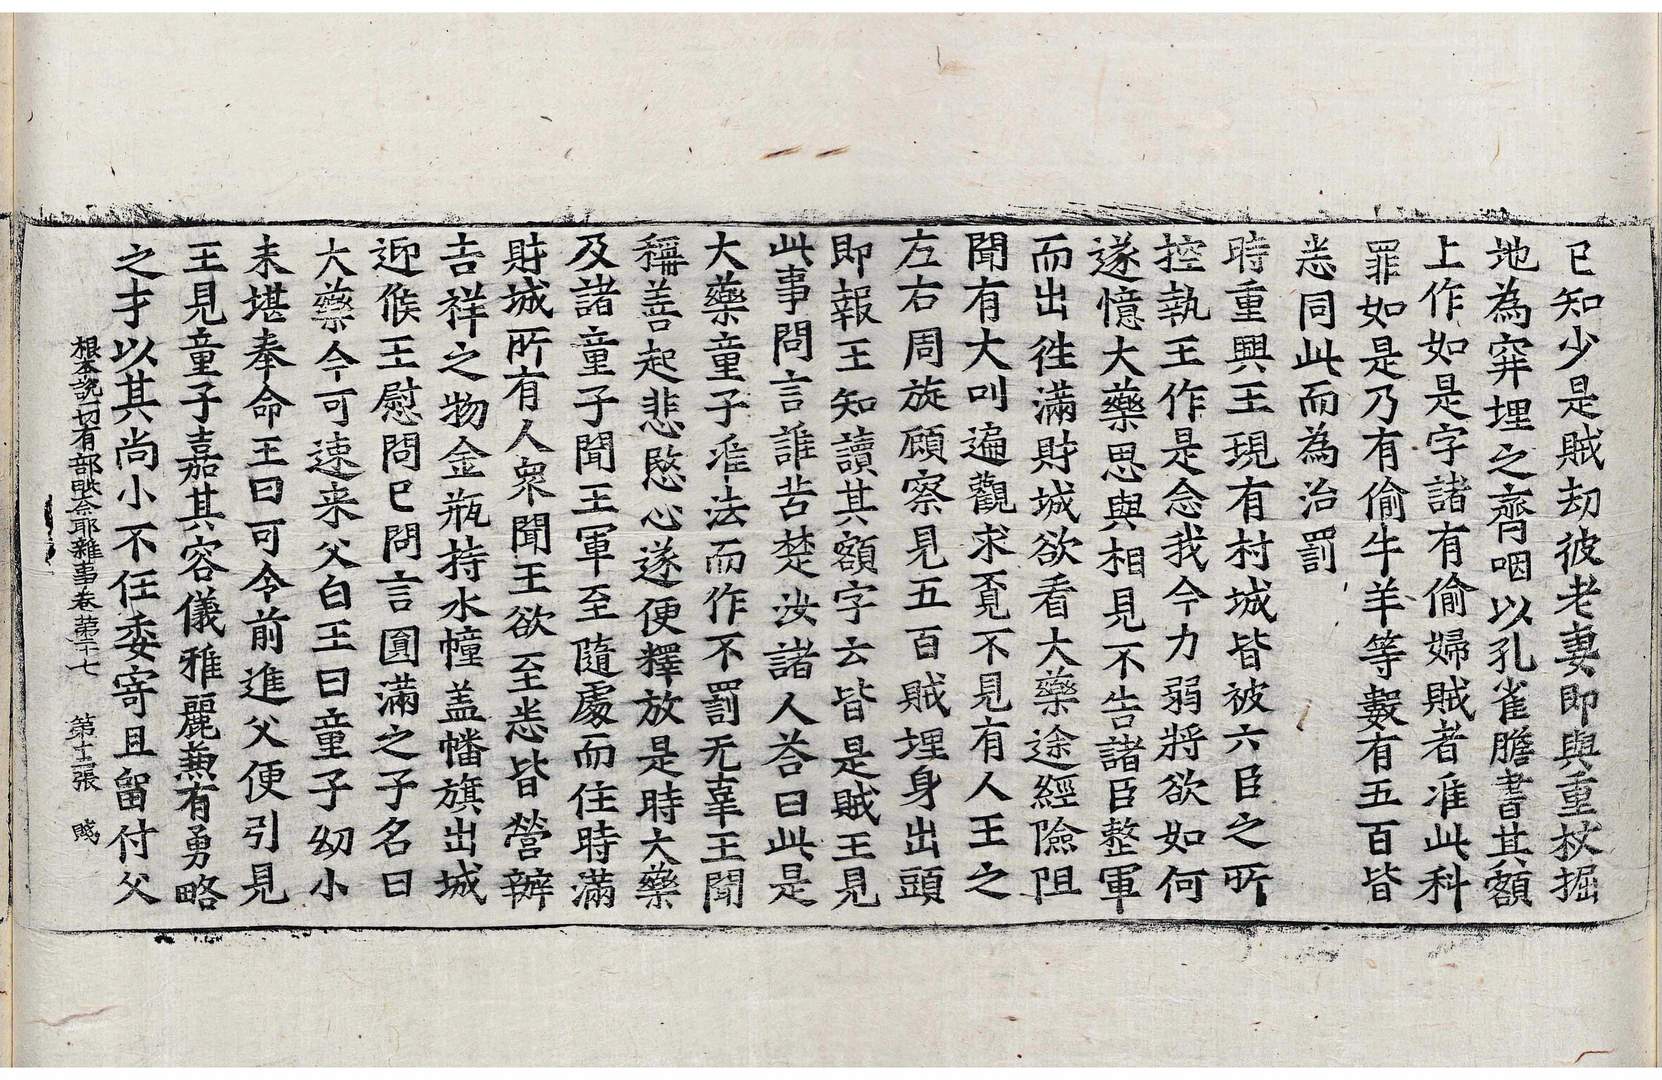 已知少是賊劫彼老妻即與重杖掘
地為穽埋之齊咽以孔雀膽書其額
上作如是字諸有偷婦賊者准此科
罪如是乃有偷牛羊等數有五百皆
悉同此而為治罰
時重興王現有村城皆被六臣之所
控執王作是念我今力弱將欲如何
遂憶大藥思與相見不告諸臣整軍
而出往滿財城欲看大藥途經險阻
聞有大叫遍觀求覓不見有人王之
左右周旋顧察見五百賊埋身出頭
即報王知讀其額字云皆是賊王見
此事問言誰苦楚汝諸人荅曰此是
大藥童子准法而作不罰无辜王聞
稱善起悲愍心遂便釋放是時大藥
及諸童子聞王軍至隨處而住時滿
財城所有人衆聞王欲至悉皆營辦
吉祥之物金瓶持水幢盖幡旗出城
迎候王慰問已問言圓滿之子名曰
大藥今可速来父白王曰童子幼小
未堪奉命王曰可令前進父便引見
王見童子嘉其容儀雅麗兼有勇略
之才以其尚小不任委寄且留付父
根本說一切有部毗奈耶雜事卷第二十七 第十二張 賤